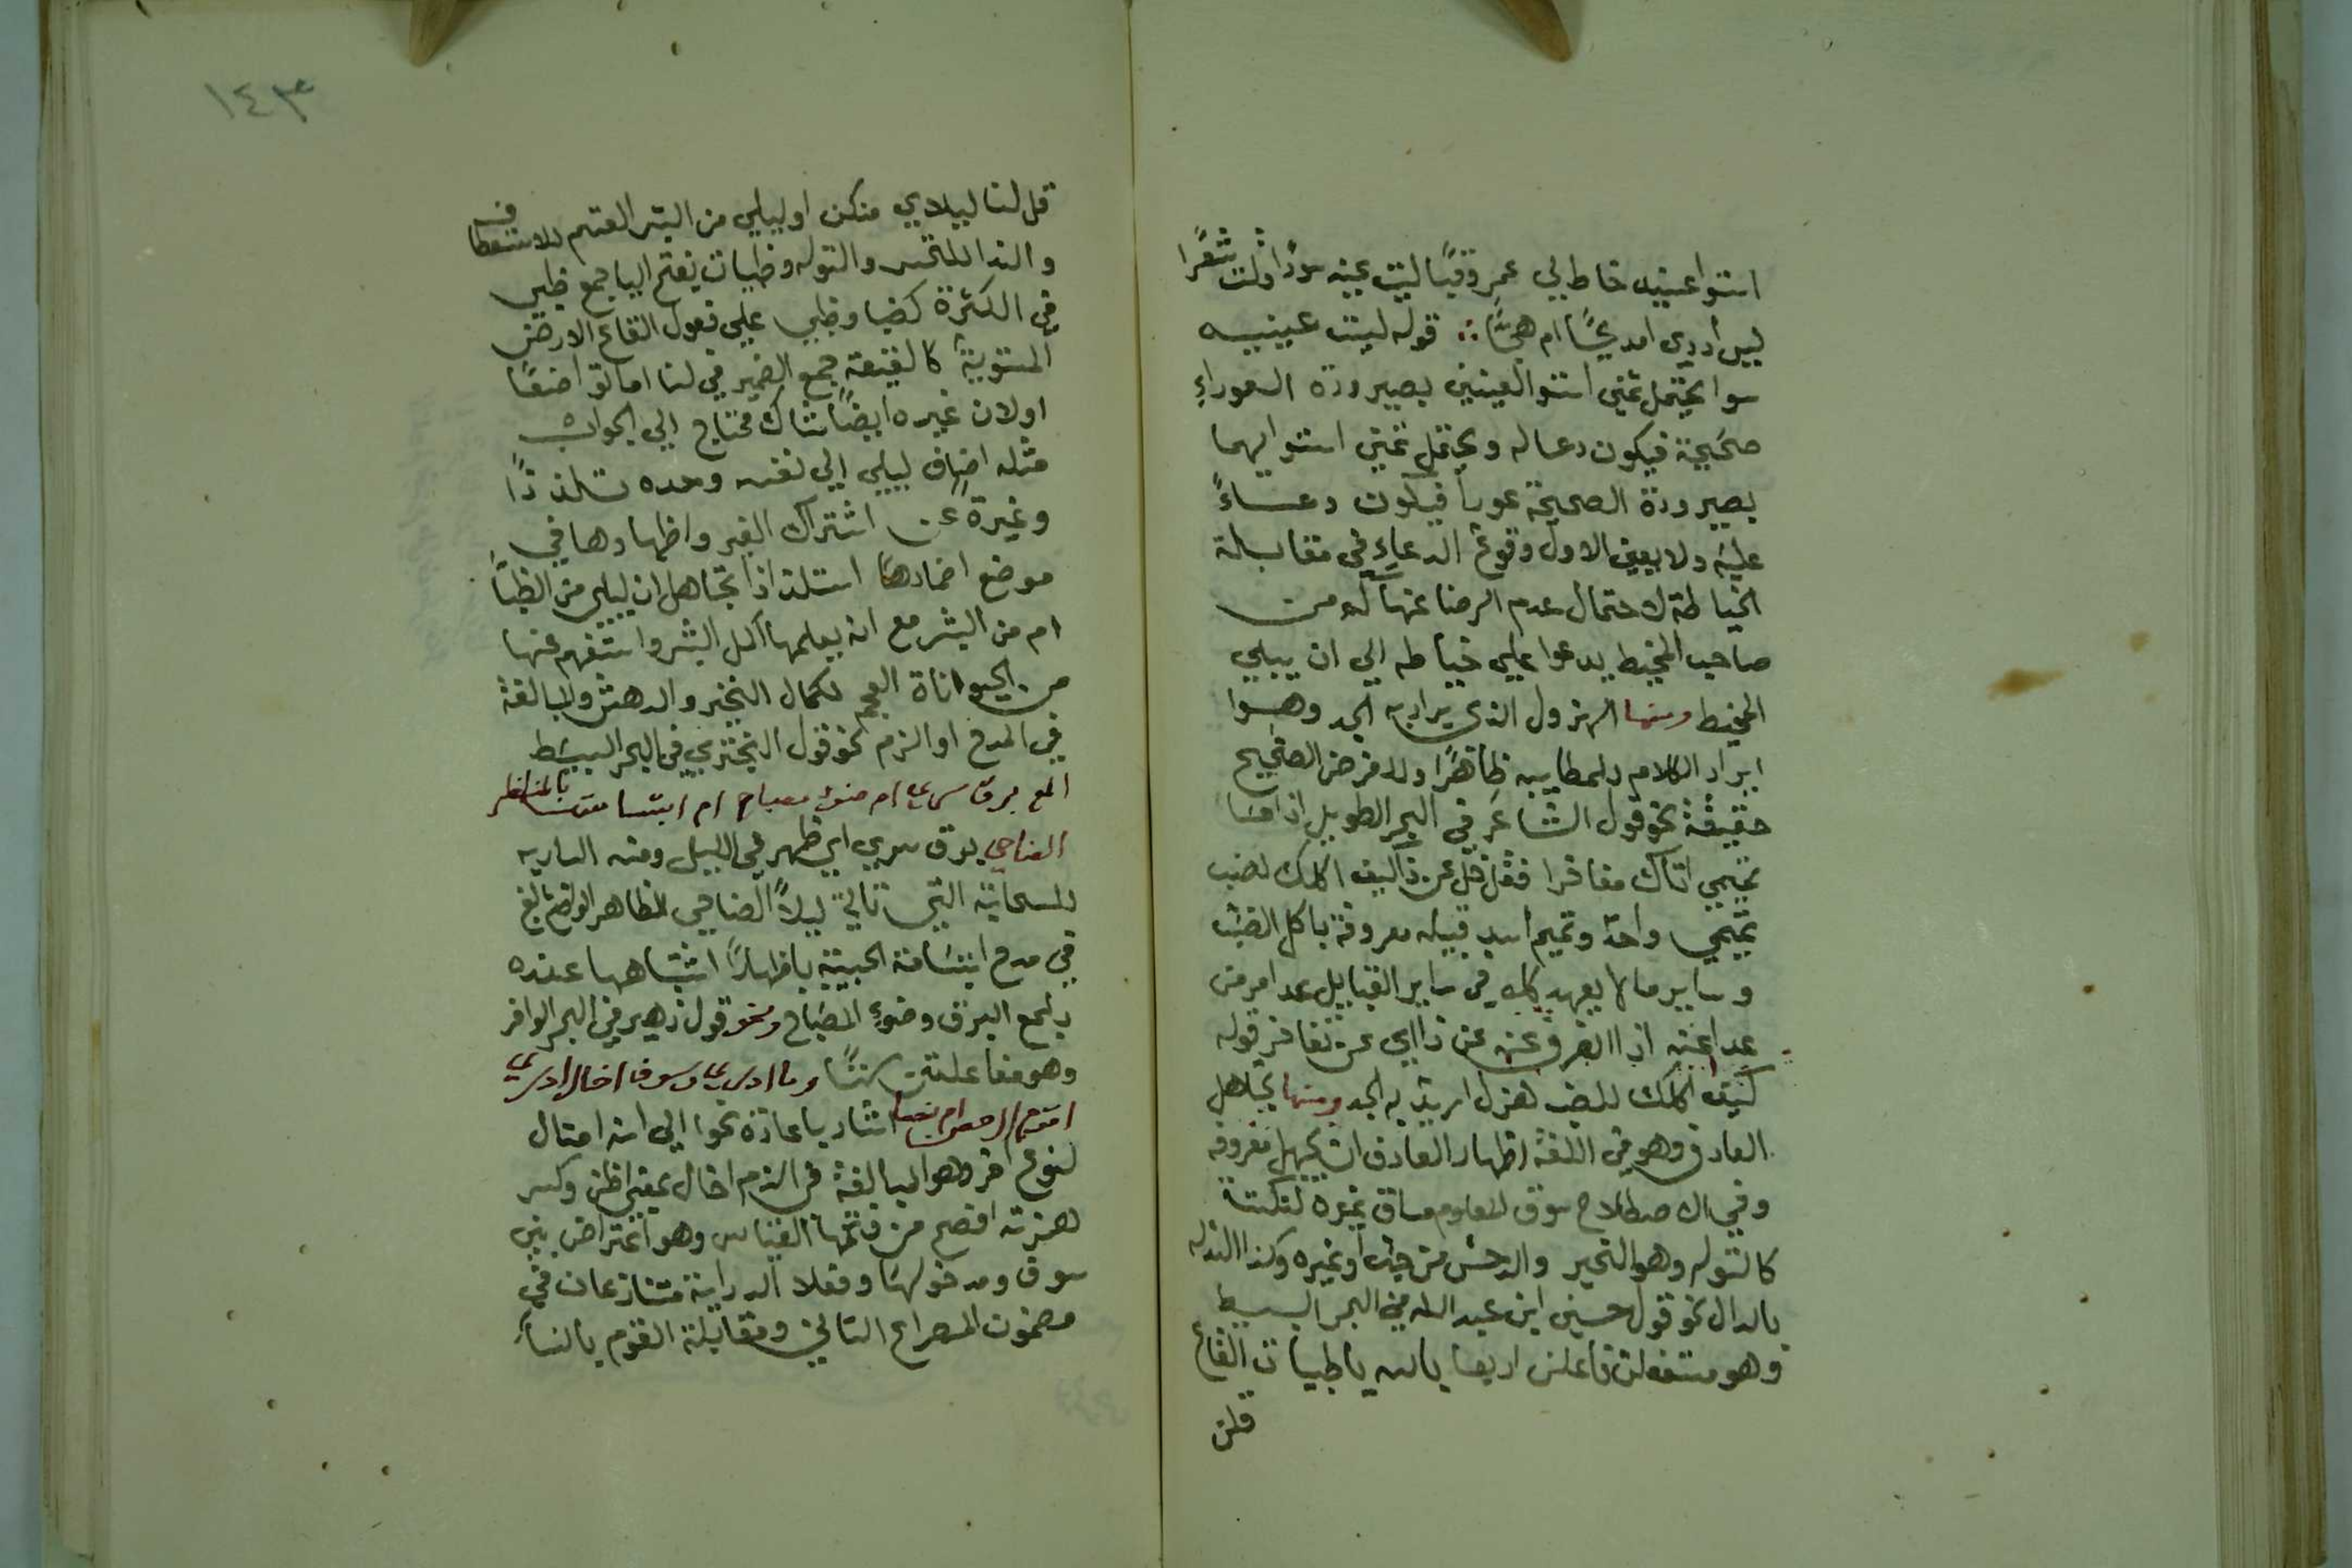 استوا عينيه خاط لي عمرو قبا ليت عينيه سوا قلت شعرا
ليس أدري امديحا ام هجا ∴ قوله ليت عينيه
سوا يحتمل تمنى استوا العينين بصيرورة العوراء
صحيحة فيكون دعا له ويحتمل تمني استوايهما
بصيرورة الصحيحة عورا فيكون دعاءً
عليه ولا يعين الاول وقوع الدعاء في مقابلة
الخياطة لاحتمال عدم الرضا عنها كم من
صاحب المخيط يدعوا على خياطه الي ان يبلي
المخيط ومنها الهزول الذي يراد به الجد وهو
ايراد الكلام للمطايبه ظاهرًا والغرض الصحيح
حقيقة نحو قول الشاعر في البحر الطويل اذا ما
تميمي اتاك مفاخرا فقل قل عن ذا كيف اكلك لضب
تميمي واحد وتميم اسد قبيله معروفة باكل الضب
وساير مالا يعهد اكله في ساير القبايل عد امر من
عد اعنه اذا انصرف عنه عن ذا اي عن تفاخر قوله
كيف اكلك للضب هزل اريد به الجد ومنها تجاهل
العارف وهو في اللغة اظهار العارف ان يجهل معروفه
وفي الاصطلاح سوق المعلوم مساق غيره لنكتة
كالتوله وهو التحير والدهش من حب أو غيره وكذا التدله
بالدال نحو قول حسين ابن عبد الله في البحر البسيط
وهو مستفعلن فاعلن اربعا بالله يا ظبيات القاع
قلن
١٤٣
قل لنا ليلاي منكن او ليلي من البشر القسم للاستعطاف
والندا للتحير والتوله وظبيات بفتح اليا جمع ظبي
في الكثرة كضبا وظبي على فعول القاع الارض
المستوية كالقيعة جمع الضمير في لنا اما تواضعًا
او لان غيره ايضًا شاك محتاج الي الجواب
مثله اضاف ليلي الي نفسه وحده تلذذًا
وغيرة عن اشتراك الغير واظهارها في
موضع اضمارها استلذاذًا تجاهل ان ليلي من الظبا
ام من البشر مع انه يعلمها اكل البشر واستفهم عنها
من الحيواناة العجم لكمال التحير والدهش والمبالغة
في المدح او الذم نحو قول البحتري في البحر البسيط
المع برق سري ام ضوء مصباح ام ابتسامتها بالمنظر
الضاحي برق سري اي ظهر في الليل ومنه الساريه
للسحابة التي تاتي ليلاً الضاحي الظاهر الواضح بالغ
في مدح ابتسامة الحبيبة باظهار اشتباهها عنده
بلمع البرق وضوء المصباح ونحو قول زهير في البحر الوافر
وهو مفاعلتن ستًا وما ادري وسوف اخال ادري
اقوم ال حصن ام نسا اشار باعادة نحوا الي انه امثال
لنوع اخر وهو المبالغة في الذم اخال بمعنى اظن وكسر
همزته افصح من فتحها القياس وهو اعتراض بين
سوف ومدخولها وفعلا الدراية متنازعان في
مضمون المصراع الثاني ومقابلة القوم بالنسا